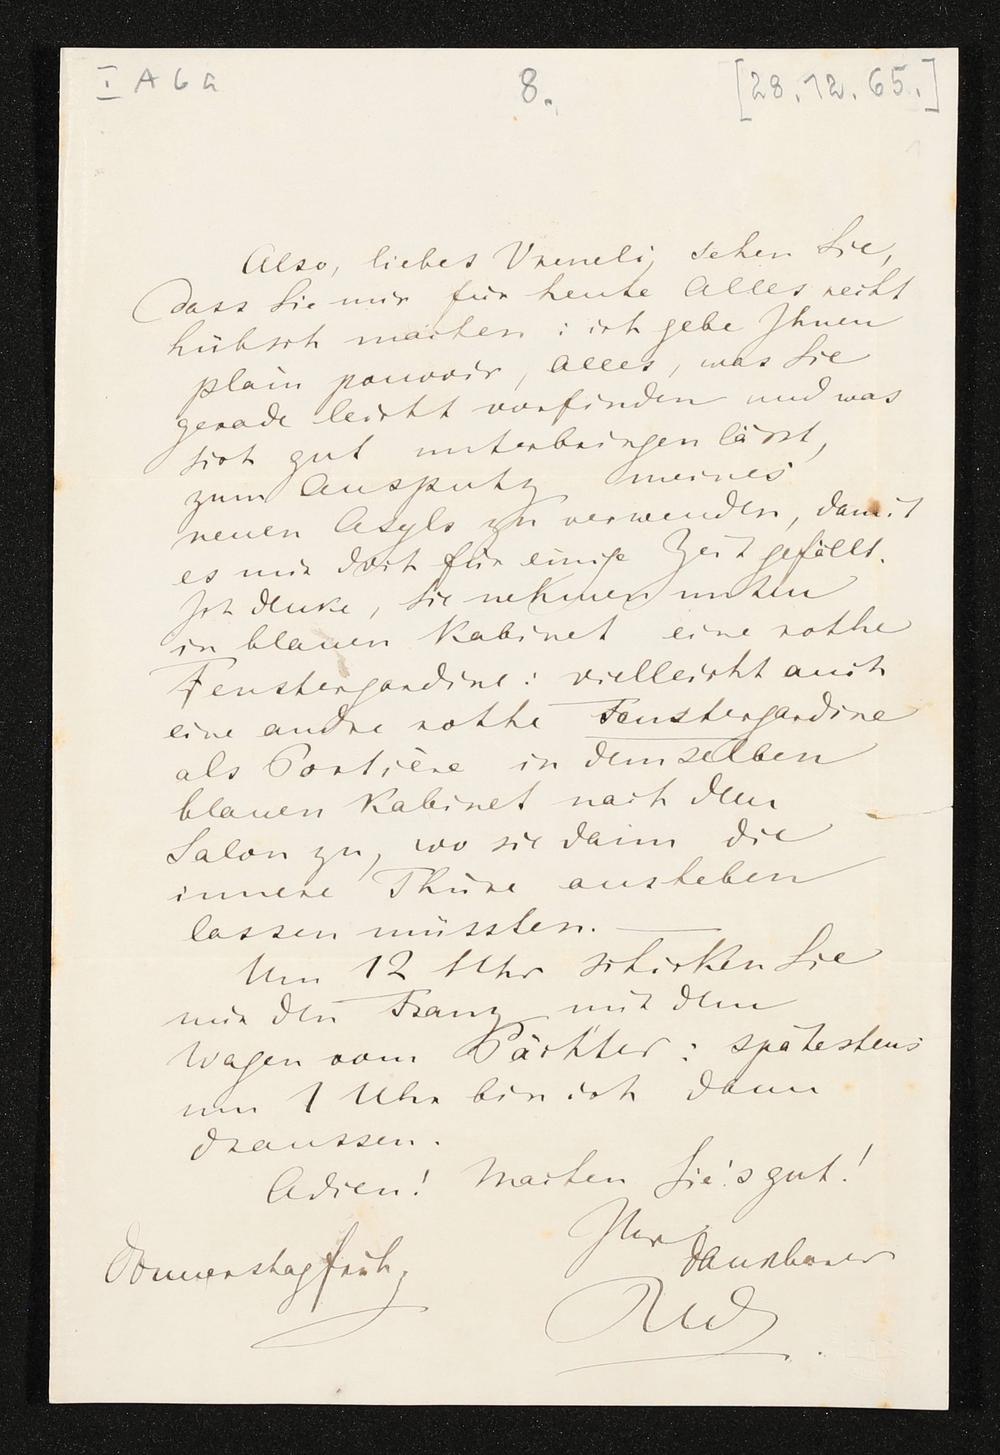 I A 6 a
8.
[28.12.65.]
Also, liebes Vreneli, sehen Sie,
dass Sie mir für heute Alles recht
hübsch machen : ich gebe Ihnen
plain pouvoir, Alles, was Sie
gerade leicht vorfinden und was
sich gut unterbringen lässt,
zum Ausputz meines
neuen Asyls zu verwenden, damit
es mir dort für einige Zeit gefällt.
Ich denke, Sie nehmen unten
in blauen Kabinet eine rothe
Fenstergardine: vielleicht auch
eine andre rothe Fenstergardine
als Portière in demselben
blauen Kabinet nach dem
Salon zu, wo sie dann die
innere Thüre ausheben
lassen müssten. —
Um 12 Uhr schicken Sie
mir den Franz mit dem
Wagen vom Pächter: spätestens
um 1 Uhr bin ich dann
draussen.
Adieu! Machen Sie's gut!
Ihr
dankbarer
Donnerstag früh,
RW